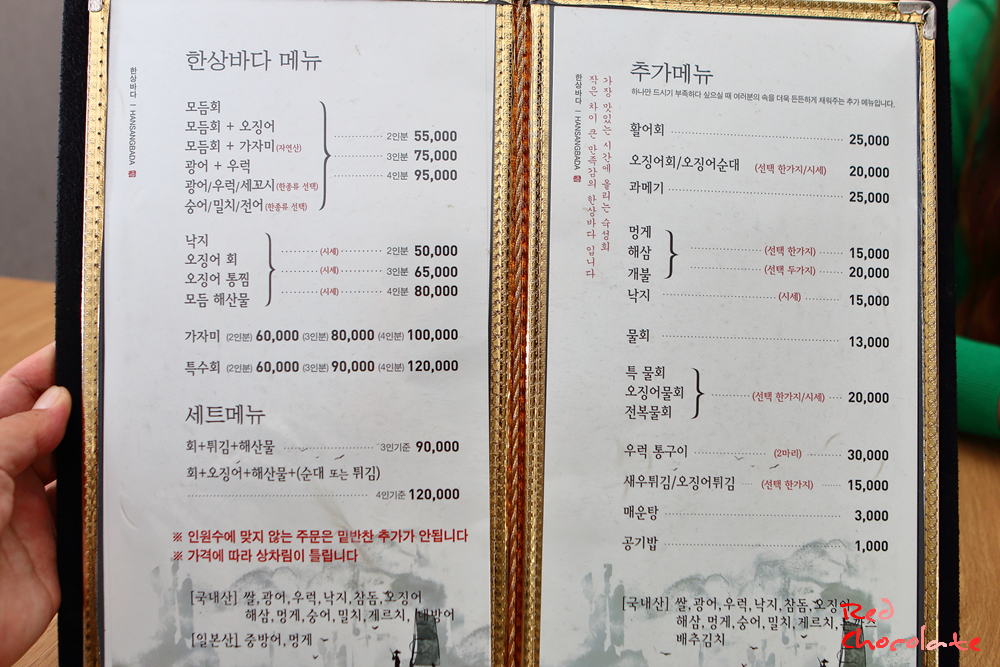 한상바다 메뉴
한상바다 | HANSANGBADA
모듬회
모듬회 + 오징어
모듬회 + 가자미(자연산)
광어 + 우럭
광어/우럭/세꼬시(한종류 선택)
숭어/밀치/전어(한종류 선택)
2인분 55,000
3인분 75,000
4인분 95,000
낙지
오징어 회
오징어 통찜
모듬 해산물
(시세) 2인분 50,000
(시세) 3인분 65,000
(시세) 4인분 80,000
가자미 (2인분) 60,000 (3인분) 80,000 (4인분) 100,000
특수회 (2인분) 60,000 (3인분) 90,000 (4인분) 120,000
세트메뉴
회+튀김+해산물 3인기준 90,000
회+오징어+해산물+(순대 또는 튀김)
4인기준 120,000
※ 인원수에 맞지 않는 주문은 밑반찬 추가가 안됩니다
※ 가격에 따라 상차림이 틀립니다
[국내산] 쌀,광어,우럭,낙지,참돔,오징어
해삼,멍게,숭어,밀치,게르치,대방어
[일본산] 중방어,멍게
가장 맛있는 시간에 올리는 숙성회
작은 차이 큰 만족감의 한상바다 입니다
한상바다 | HANSANGBADA
추가메뉴
하나만 드시기 부족하다 싶으실 때 여러분의 속을 더욱 든든하게 채워주는 추가 메뉴입니다.
활어회 25,000
오징어회/오징어순대 (선택 한가지/시세) 20,000
과메기 25,000
멍게
해삼
개불
(선택 한가지) 15,000
(선택 두가지) 20,000
낙지 (시세) 15,000
물회 13,000
특 물회
오징어물회
전복물회
(선택 한가지/시세) 20,000
우럭 통구이 (2마리) 30,000
새우튀김/오징어튀김 (선택 한가지) 15,000
매운탕 3,000
공기밥 1,000
[국내산] 쌀,광어,우럭,낙지,참돔,오징어
해삼,멍게,숭어,밀치,게르치,
배추김치
Red
Chocolate